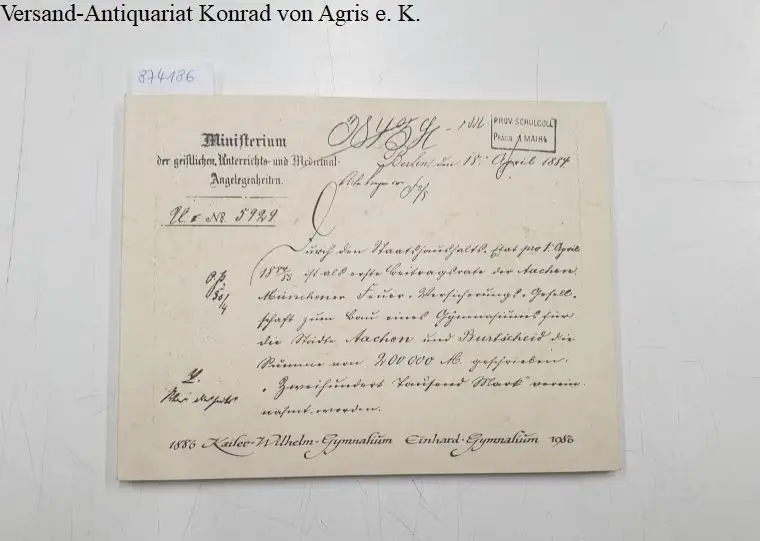 Versand-Antiquariat Konrad von Agris e. K.
874186
Ministerium
der geistlichen, Unterrichts- und Medicinal-
Angelegenheiten.
PROV. SCHULCOLL
MAI
Berlin, den 18. April 1884
No. 5929
Durch den Staatshaushalts-Etat pro 1. April
1884/85 ist als erste Beitragsrate der Aachen-
Münchener Feuer-Versicherungs-Gesell-
schaft zum Bau eines Gymnasiums für
die Städte Aachen und Burtscheid die
Summe von 200 000 M. geschrieben:
„Zweihundert Tausend Mark" verein-
nahmt worden.
1886 Kaiser-Wilhelm-Gymnasium Einhard-Gymnasium 1986